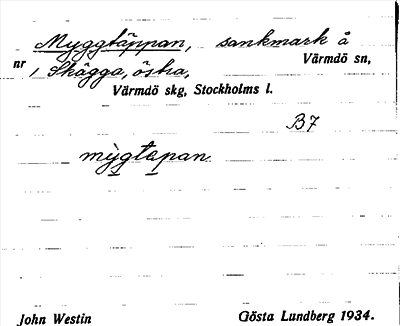 Myggtäppan, sankmark å
nr
1 Skägga, östra, Värmdö sn,
Värmdö skg, Stockholms l.
B7
mỳgtapan
John Westin Gösta Lundberg 1934.